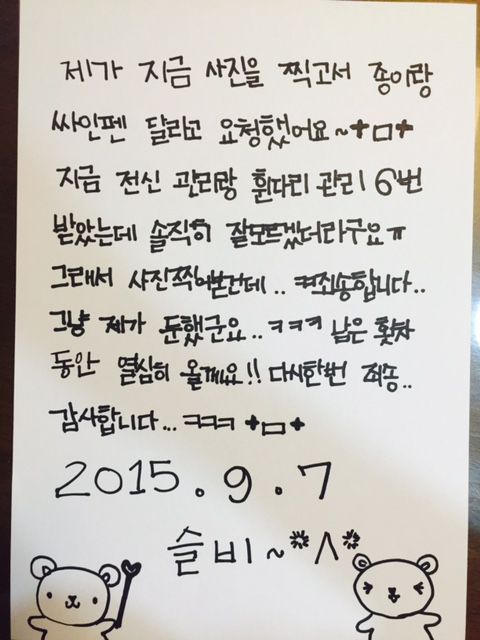 제가 지금 사진을 찍고서 종이랑
싸인펜 달라고 요청했어요~+ㅁ+
지금 전신 관리랑 휜다리 관리 6번
받았는데 솔직히 잘모르겠더라구요ㅠ
그래서 사진찍어본건데.. ㅋ죄송합니다..
그냥 제가 둔했군요..ㅋㅋㅋ 남은 횟차
동안 열심히 올게요!! 다시한번 죄송..
감사합니다...ㅋㅋㅋ +ㅁ+
2015.9.7
슬비~*^*